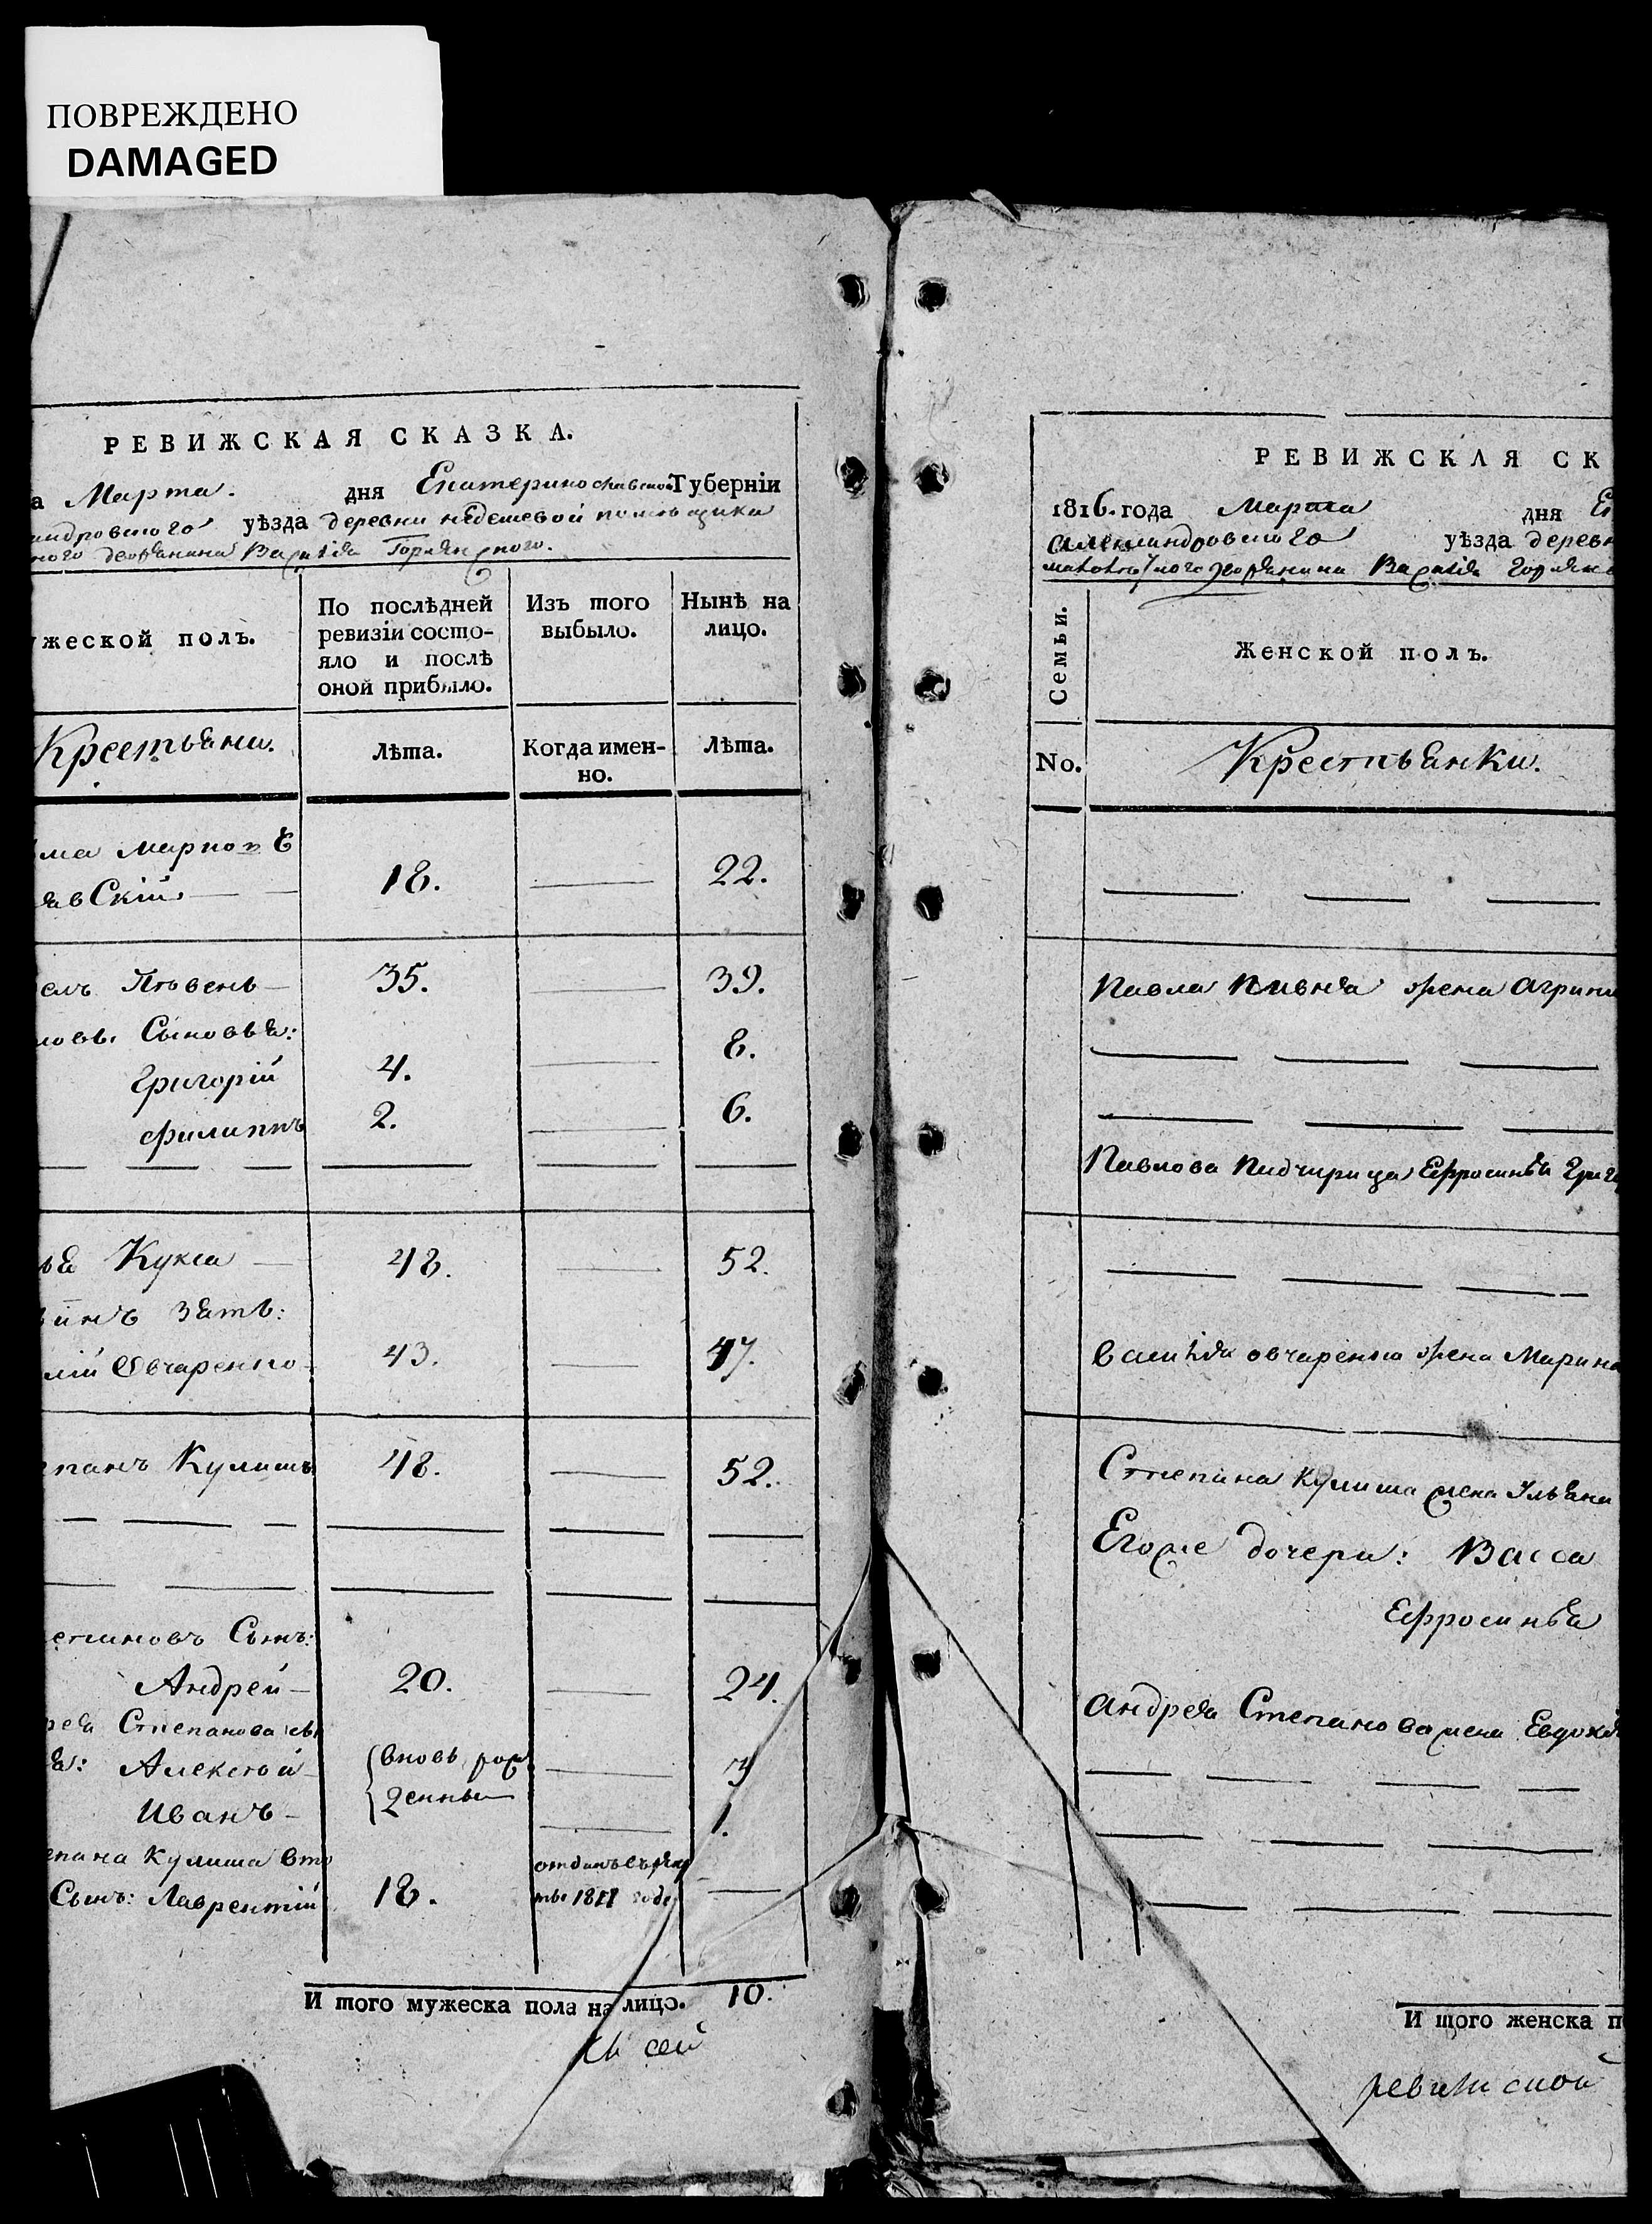 ПОВРЕЖДЕНО
DAMAGED
РЕВИЖСКАЯ СКАЗКА.
а Марта. дня Екатеринославской Губерніи
андровского уѣзда деревни недешевой помѣщика
ного дворянина Василія
ужеской полъ.
По послѣдней
ревизіи состо-
яло и послѣ
оной прибыло.
Изъ того
выбыло.
Нынѣ на
лицо.
Крестьяни.
лѣта.
Когда имен-
но.
лѣта.
ма Марко
явскій 18. 22.
елъ Пѣвень 35. 39.
ловы Сыновья:
Григорій 4. 8.
филиппъ 2. 6.
ья Кукса 48. 52.
инъ зять:
лій Овчаренко 43. 47.
епанъ Кулишъ 48. 52.
епановъ Сынъ:
Андрей 20. 24.
рея Степанова сы
я: Алексѣй вновь рож 3
Иванъ денны 1.
епана Кулиша вто
Сынъ: Лаврентій 18. отданъ въ рекр
ты 1811 годе
И того мужеска пола на лицо. 10.
Къ сей
РЕВИЖСКАЯ СК
1816. года Марта дня Ек
Александровского уѣзда дерев
дворянина Василія
Семьи.
Женской полъ.
No.
Крестьянки.
Павла Пивня жена Агрипи
Павлова Падчирица Ефросинья Григ
Василія овчаренка жена Марина
Степана Кулиша жена Ульяна
Егоже дочери: Васса
Ефросинья
Андрея Степанова жена Евдокі
И того женска п
ревижской